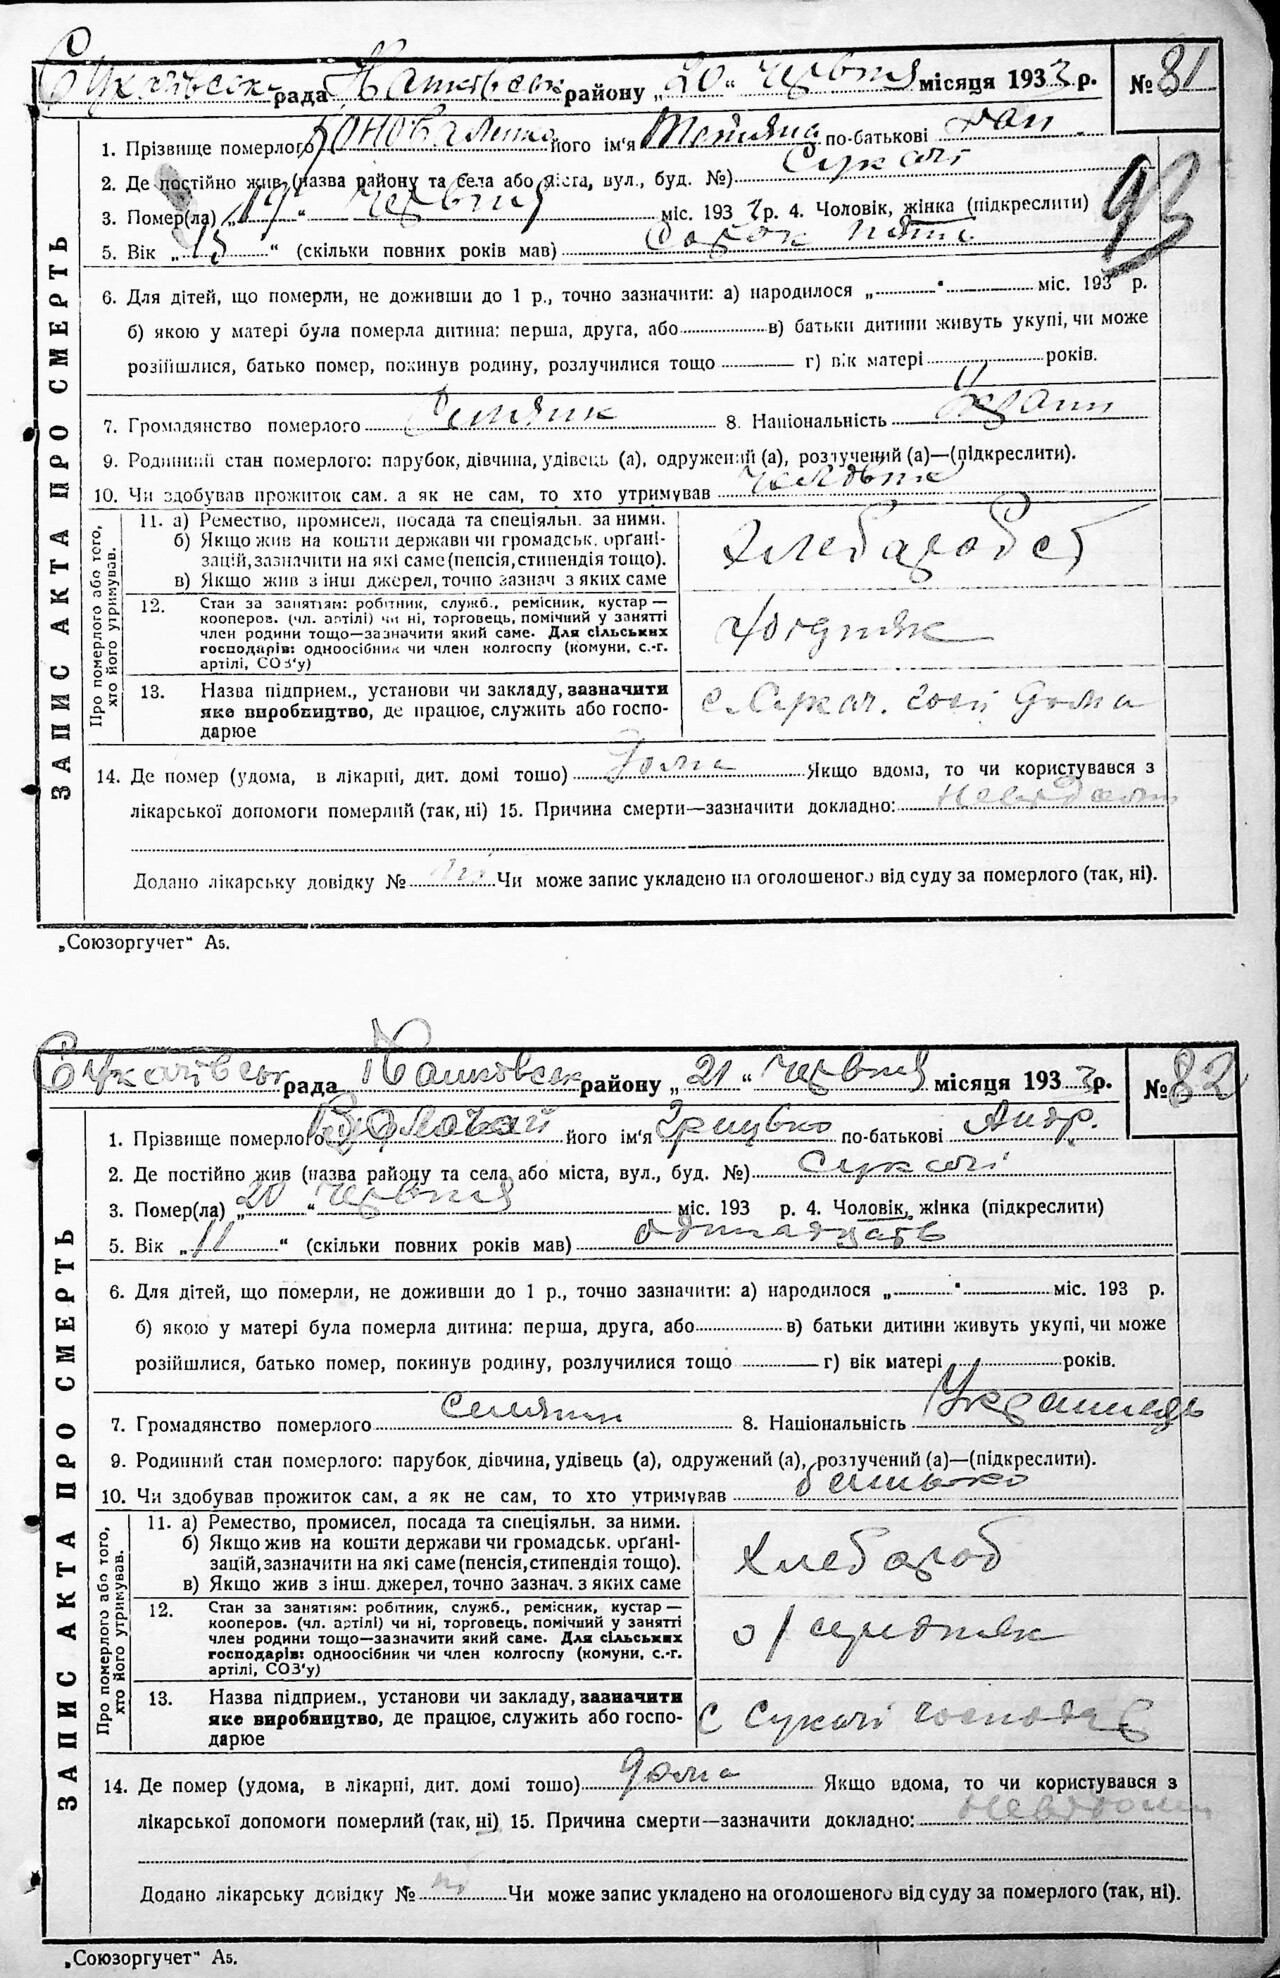 Сукачівськ рада Пашківськ району „20“ червня місяця 1933 р. № 81
1. Прізвище померлого Коноваленко його ім'я Тетяна по-батькові
2. Де постійно жив (назва району та села або міста, вул., буд. №) Сукачі
3. Помер(ла) „19“ червня міс. 193 р. 4. Чоловік, жінка (підкреслити)
93
5. Вік „ “ (скільки повних років мав) сорок
6. Для дітей, що померли, не доживши до 1 р., точно зазначити: а) народилося „ “ міс. 193 р.
б) якою у матері була померла дитина: перша, друга, або в) батьки дитини живуть укупі, чи може
розійшлися, батько помер, покинув родину, розлучилися тощо г) вік матері років.
7. Громадянство померлого Селянин 8. Національність
9. Родинний стан померлого: парубок, дівчина, удівець (а), одружений (а), розлучений (а)—(підкреслити).
10. Чи здобував прожиток сам, а як не сам, то хто утримував
ЗАПИС АКТА ПРО СМЕРТЬ
Про померлого або того, хто його утримував.
11. а) Ремество, промисел, посада та спеціяльн. за ними.
б) Якщо жив на кошти держави чи громадськ. орґані-
зацій, зазначити на які саме (пенсія, стипендія тощо).
в) Якщо жив з інш джерел, точно зазнач з яких саме
12. Стан за занятіям: робітник, служб., ремісник, кустар—
кооперов. (чл. артілі) чи ні, торговець, помічний у занятті
член родини тощо—зазначити який саме. Для сільських
господарів: одноосібник чи член колгоспу (комуни, с.-г.
артілі, СОЗ'у)
13. Назва підприєм., установи чи закладу, зазначити
яке виробництво, де працює, служить або госпо-
дарює
14. Де помер (удома, в лікарні, дит. домі тощо) Дома Якщо вдома, то чи користувався з
лікарської допомоги померлий (так, ні) 15. Причина смерти—зазначити докладно: Невідомо
Додано лікарську довідку № ні Чи може запис укладено на оголошеного від суду за померлого (так, ні).
„Союзоргучет“ А5.
Сукачівськ рада Пашківськ району „21“ червня місяця 1933 р. № 82
1. Прізвище померлого його ім'я Грицько по-батькові Андр.
2. Де постійно жив (назва району та села або міста, вул., буд. №) Сукачі
3. Помер(ла) „20“ червня міс. 193 р. 4. Чоловік, жінка (підкреслити)
5. Вік „11“ (скільки повних років мав) одинадцять
6. Для дітей, що померли, не доживши до 1 р., точно зазначити: а) народилося „ “ міс. 193 р.
б) якою у матері була померла дитина: перша, друга, або в) батьки дитини живуть укупі, чи може
розійшлися, батько помер, покинув родину, розлучилися тощо г) вік матері років.
7. Громадянство померлого Селянин 8. Національність Українець
9. Родинний стан померлого: парубок, дівчина, удівець (а), одружений (а), розлучений (а)—(підкреслити).
10. Чи здобував прожиток сам, а як не сам, то хто утримував батько
ЗАПИС АКТА ПРО СМЕРТЬ
Про померлого або того, хто його утримував.
11. а) Ремество, промисел, посада та спеціяльн. за ними.
б) Якщо жив на кошти держави чи громадськ. орґані-
зацій, зазначити на які саме (пенсія, стипендія тощо).
в) Якщо жив з інш. джерел, точно зазнач. з яких саме
Хлебороб
12. Стан за занятіям: робітник, служб., ремісник, кустар—
кооперов. (чл. артілі) чи ні, торговець, помічний у занятті
член родини тощо—зазначити який саме. Для сільських
господарів: одноосібник чи член колгоспу (комуни, с.-г.
артілі, СОЗ'у)
о/середняк
13. Назва підприєм., установи чи закладу, зазначити
яке виробництво, де працює, служить або госпо-
дарює
с Сукачі
14. Де помер (удома, в лікарні, дит. домі тощо) Дома Якщо вдома, то чи користувався з
лікарської допомоги померлий (так, ні) 15. Причина смерти—зазначити докладно: Невідомо
Додано лікарську довідку № ні Чи може запис укладено на оголошеного від суду за померлого (так, ні).
„Союзоргучет“ А5.